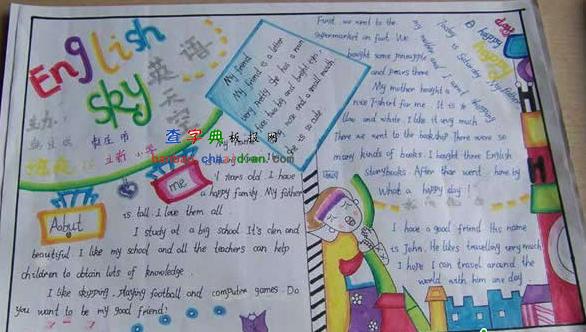 English
sky
英语
天空
主办:
枣庄市
立新小学
查字典板报网
banbao.chazidian.com
My friend
My friend is a letter
very pretty she has a
two big and bright eyes,
nose and a small mouth
She is so cute
About
me
years old. I have
a happy family. My father
is tall. I love them all
I study at a big school. It's clen and
beautiful I like my school and all the teachers can help
children to obtain lots of knowledge.
I like skipping, playing football and computer games. Do
you want to be my good friend?
A happy
day
happy
Today is Saturday My father
my mother and I went shopping
First, we went to the
supermarket on foot. We
bought some pineapple
and pears there
My mother bought a
nice T-shirt for me. It is
and white I like it very much
There we went to the bookshop There were so
many kinds of books. I bought three English
storybooks. After that went home by
What a happy day!
I have a good friend His name
is John. He likes travelling very much
I hope I can travel around the
world with him one day